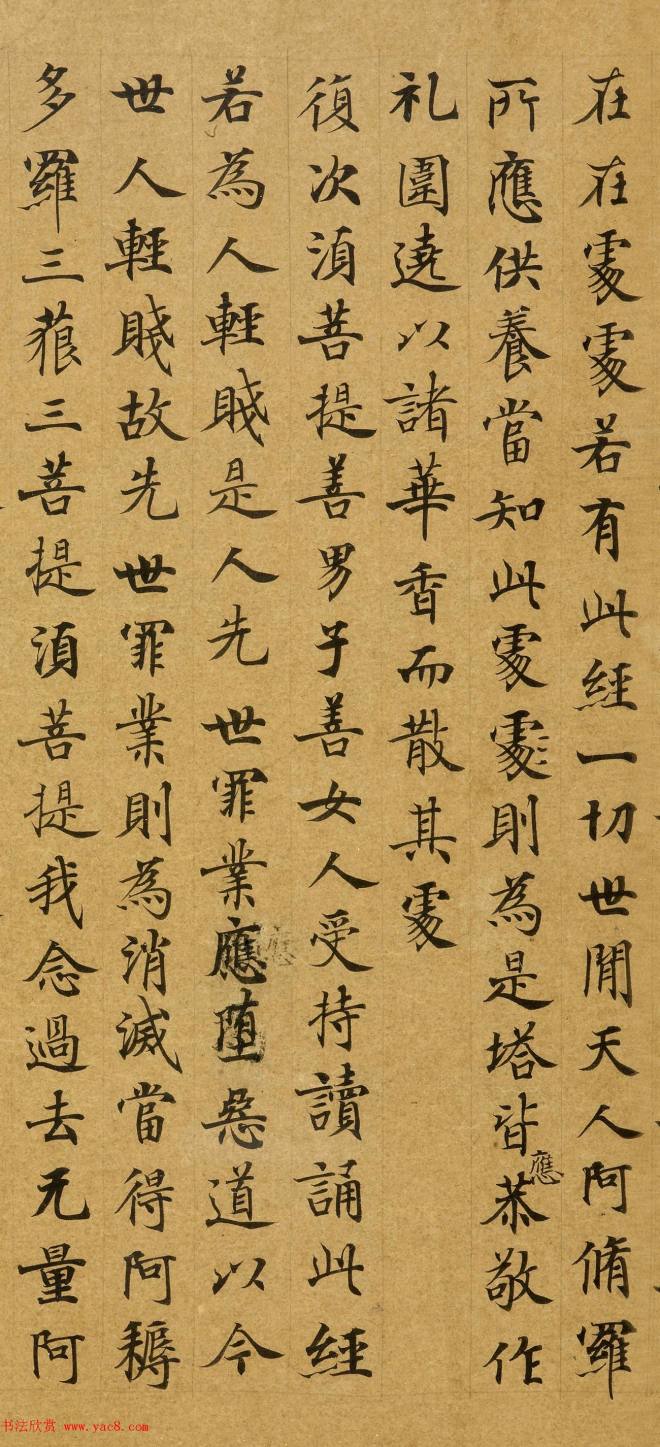 在在處處若有此經一切世間天人阿脩羅
所應供養當知此處處則為是塔皆應恭敬作
礼圍遶以諸華香而散其處
復次須菩提善男子善女人受持讀誦此經
若為人輕賤是人先世罪業應墮惡道以今
世人輕賤故先世罪業則為消滅當得阿耨
多羅三藐三菩提須菩提我念過去无量阿
應
书法欣赏 www.yac8.com